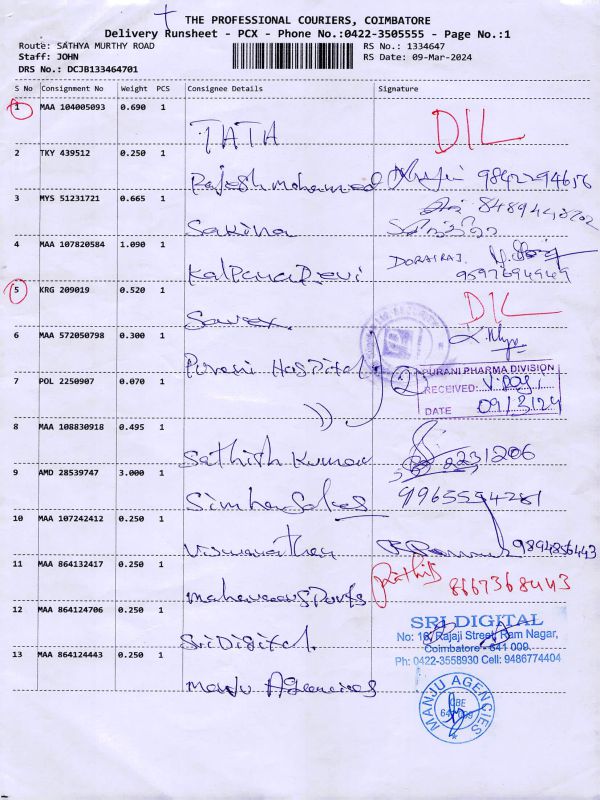 THE PROFESSIONAL COURIERS, COIMBATORE
Delivery Runsheet - PCX - Phone No.:0422-3505555 - Page No.:1
Route: SATHYA MURTHY ROAD
RS No.: 1334647
Staff: JOHN
RS Date: 09-Mar-2024
DRS No.: DCJB133464701
S No Consignment No Weight PCS Consignee Details Signature
1 MAA 104005093 0.690 1 TATA DIL
2 TKY 439512 0.250 1 Rajesh Mohamed
3 MYS 51231721 0.665 1 Sakina
4 MAA 107820584 1.090 1 Kalpana Devi DORAIRAJ
5 KRG 209019 0.520 1 DIL
6 MAA 572050798 0.300 1 Purani Hospital
PURANI PHARMA DIVISION
RECEIVED:
DATE 09/3/24
7 POL 2250907 0.070 1 ))
8 MAA 108830918 0.495 1 Sathish Kumar 2231206
9 AMD 28539747 3.000 1 Simha Sales
10 MAA 107242412 0.250 1 Viswanathan 9894856443
11 MAA 864132417 0.250 1 8667368443
12 MAA 864124706 0.250 1 Sri Digital.
SRI DIGITAL
No: 16, Rajaji Street, Ram Nagar,
Coimbatore - 641 009.
Ph: 0422-3558930 Cell: 9486774404
13 MAA 864124443 0.250 1 Manju Agencies
MANJU AGENCIES
CBE